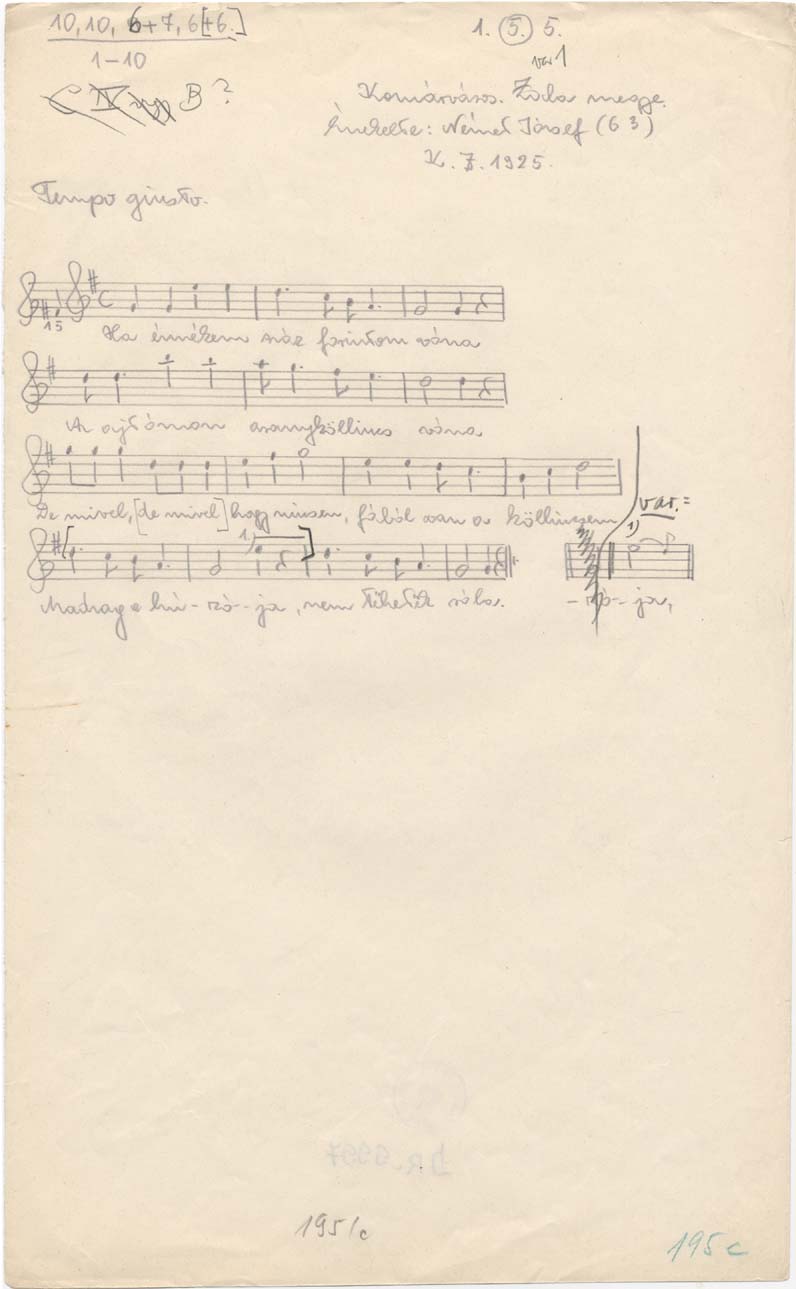 10, 10, 6+7, 6[+6.]
1. 5. 5.
1–10
var 1
C IV B?
Komárváros. Zala megye.
Énekelte: Német József (63)
K. Z. 1925.
Tempo giusto.
15
Ha énnékem száz forintom vóna
Az ajtómon aranykilincs vóna
De mivel, [de mivel] hogy nincsen, fából van a köllincsem
var. =
1.)
1)
Madzag a hú-zó-ja, nem illik róla.
-zó-ja,
DR. 9997
195/c
195 c